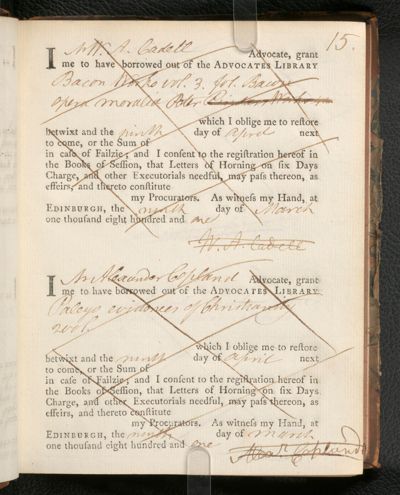 15.
I Mr W. A. Cadell Advocate, grant
me to have borrowed out of the ADVOCATES LIBRARY
Bacon Works vol. 3. fol. Bacon
opera moralia
which I oblige me to reſtore
betwixt and the ninth day of April next
to come, or the Sum of
in caſe of Failzie; and I conſent to the regiſtration hereof in
the Books of Seſſion, that Letters of Horning on ſix Days
Charge, and other Executorials needful, may paſs thereon, as
effeirs, and thereto conſtitute
my Procurators. As witneſs my Hand, at
EDINBURGH, the ninth day of March
one thouſand eight hundred and one
W. A. Cadell
I Mr Alexander Copland Advocate, grant
me to have borrowed out of the ADVOCATES LIBRARY
Paleys evidences of Christianity
2 vol.
which I oblige me to reſtore
betwixt and the ninth day of April next
to come, or the Sum of
in caſe of Failzie; and I conſent to the regiſtration hereof in
the Books of Seſſion, that Letters of Horning on ſix Days
Charge, and other Executorials needful, may paſs thereon, as
effeirs, and thereto conſtitute
my Procurators. As witneſs my Hand, at
EDINBURGH, the ninth day of March
one thouſand eight hundred and one
Alexr. Copland